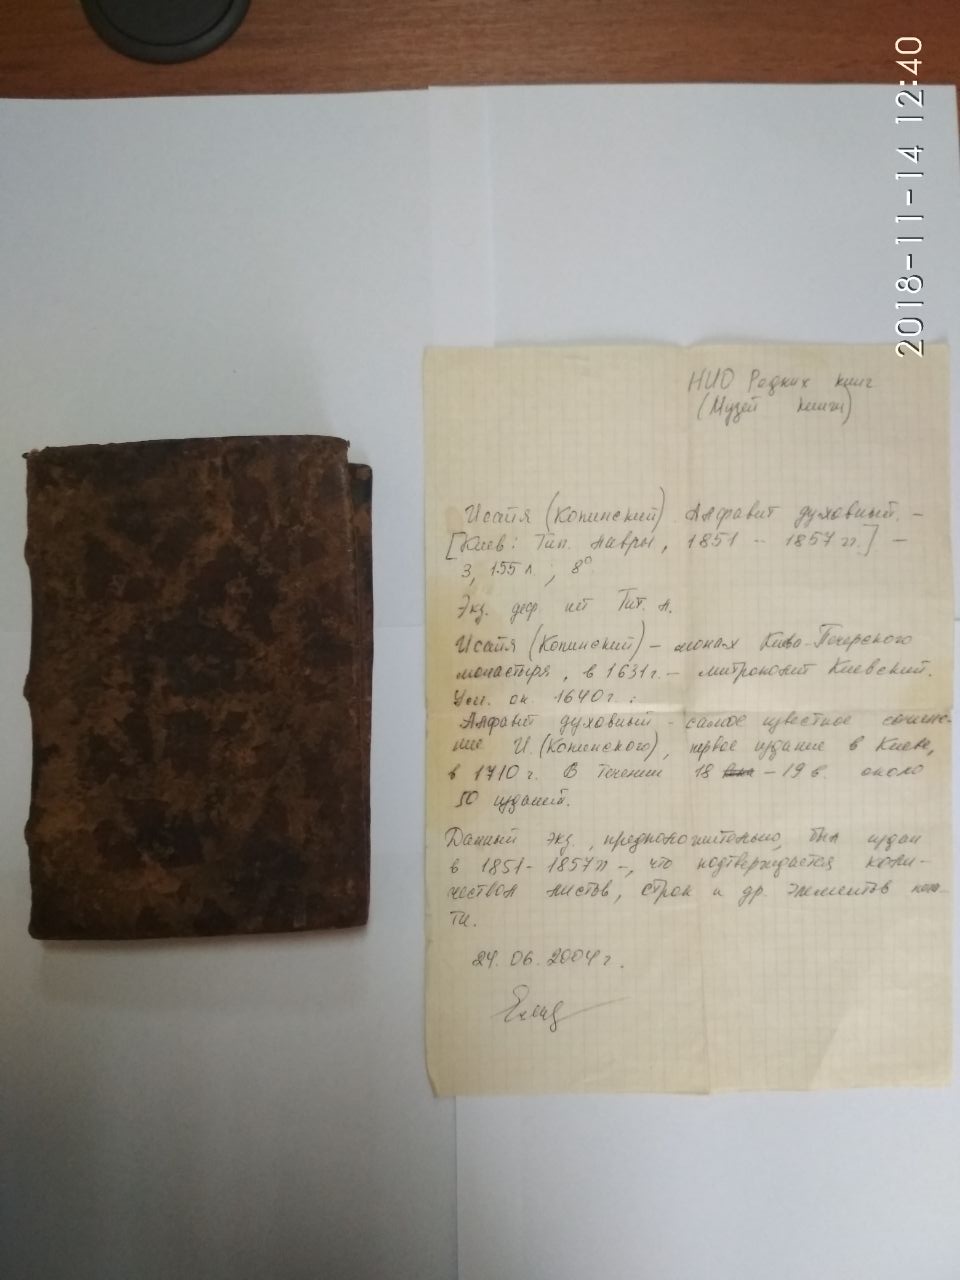 2018-11-14 12:40
НИО Редких книг
(Музей книги)
Исайя (Копинский). Алфавит духовный. –
[Киев: Тип. Лавры, 1851 – 1857 гг.] –
3, 155 л.; 8°
Экз. деф. нет Тит. л.
Исайя (Копинский) – монах Киево-Печерского
монастыря, в 1631 г. – митрополит Киевский.
Ум. ок. 1640 г.
Алфавит духовный – самое известное сочине-
ние И. (Копинского), первое издание в Киеве,
в 1710 г. В течении 18 – 19 в. около
50 изданий.
Данный экз., предположительно, был издан
в 1851-1857 гг –, что подтверждается коли-
чеством листов, строк и др. элементов печа-
ти.
24. 06. 2004 г.